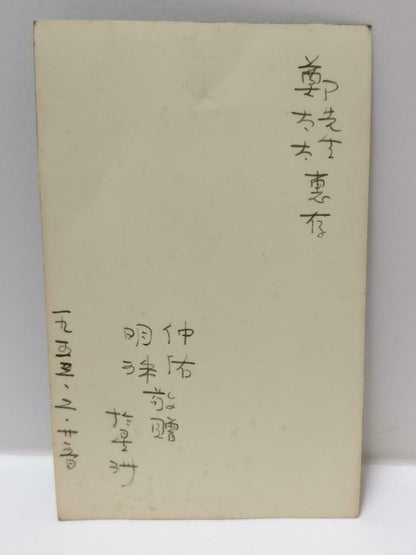 鄭先生
太太
惠存
仲佑
明珠
敬贈
於星洲
一九五五.二.廿